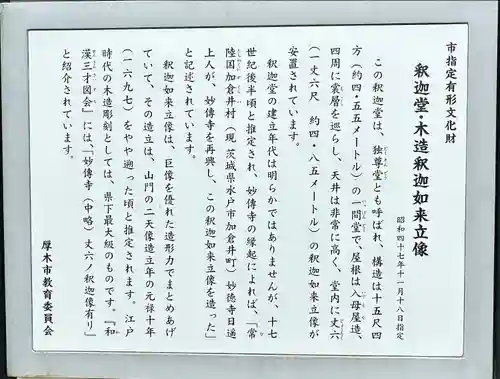 市指定有形文化財
釈迦堂・木造釈迦如来立像
昭和四十七年十一月十八日指定
この釈迦堂は、独尊堂とも呼ばれ、構造は十五尺四
方（約四・五五メートル）の一間堂で、屋根は入母屋造、
四周に雲層を巡らし、天井は非常に高く、堂内に丈六
（一丈六尺　約四・八五メートル）の釈迦如来立像が
安置されています。
釈迦堂の建立年代は明らかではありませんが、十七
世紀後半頃と推定され、妙傳寺の縁起によれば、「常
陸国加倉井村（現 茨城県水戸市加倉井町）妙徳寺日遥
上人が、妙傳寺を再興し、この釈迦如来立像を造った」
と記述されています。
釈迦如来立像は、巨像を優れた造形力でまとめあげ
ていて、その造立は、山門の二天像造立年の元禄十年
（一六九七）をやや遡った頃と推定されます。江戸
時代の木造彫刻としては、県下最大級のものです。『和
漢三才図会』には、「妙傳寺（中略）丈六ノ釈迦像有リ」
と紹介されています。
厚木市教育委員会